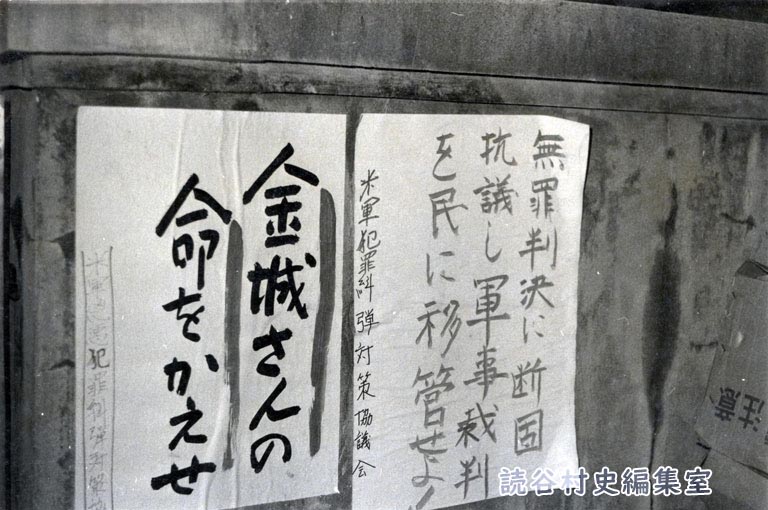 無罪判決に断固
抗議し軍事裁判
を民に移管せよ!
米軍犯罪糾弾対策協議会
金城さんの
命をかえせ
犯罪糾弾対
注意
読谷村史編集室